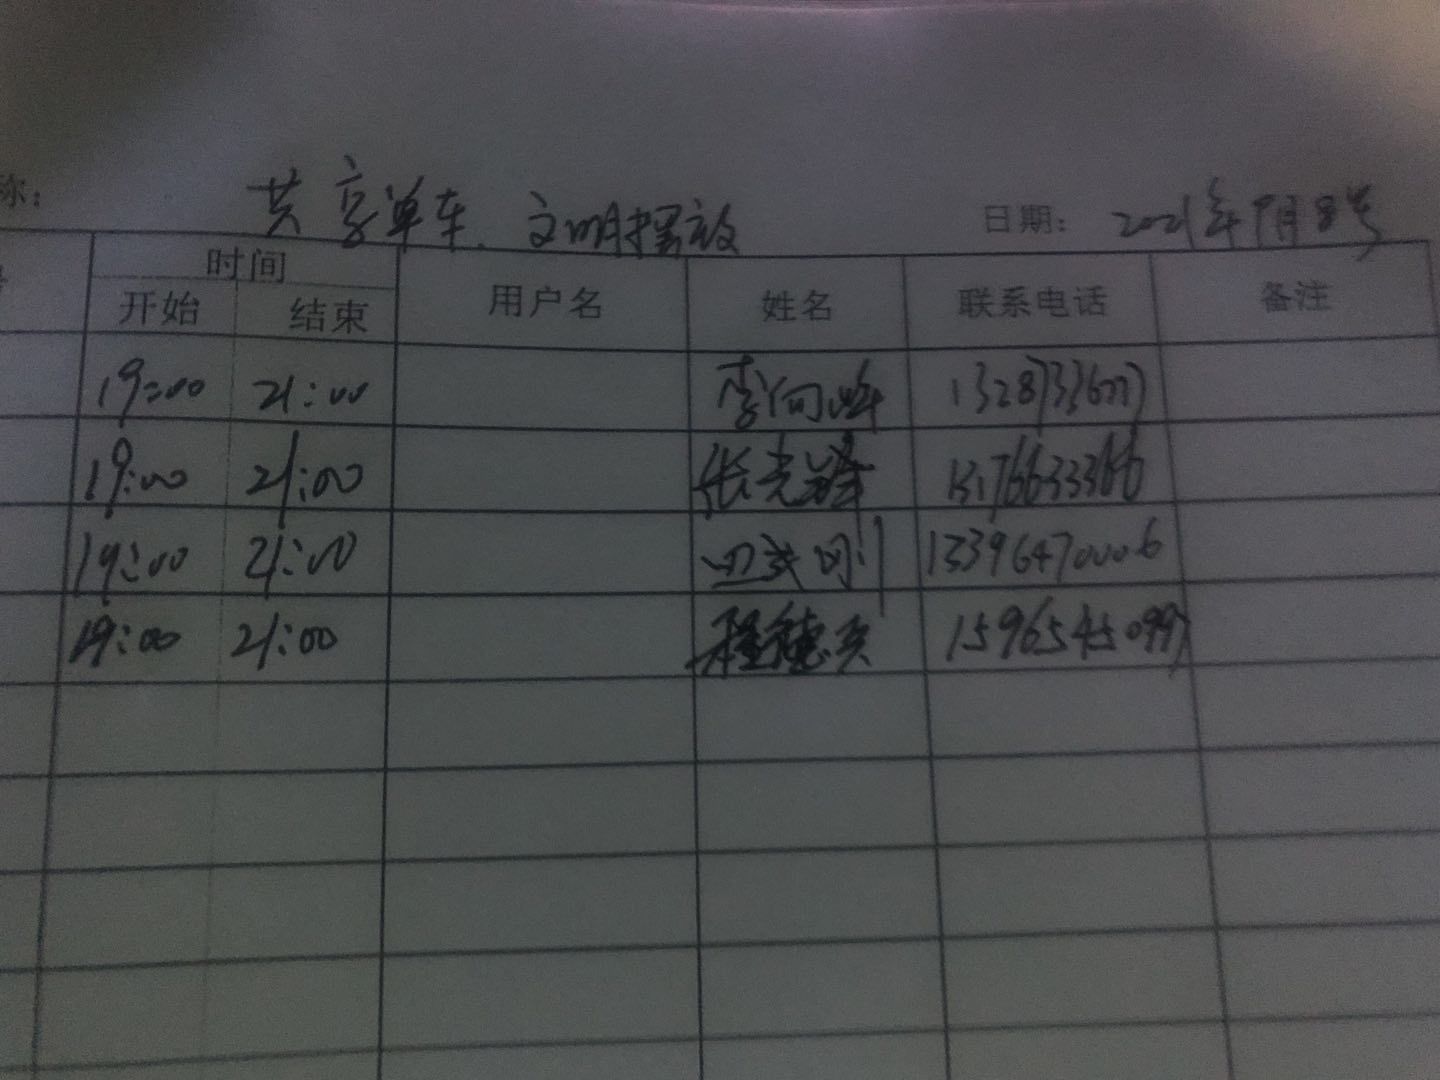 称：
共享单车、文明摆放
日期： 2021年9月8号
时间
开始 结束 用户名 姓名 联系电话 备注
19:00 21:00 李向峰
19:00 21:00 张光 13176633366
19:00 21:00 13396470006
19:00 21:00 程德英 15965450997